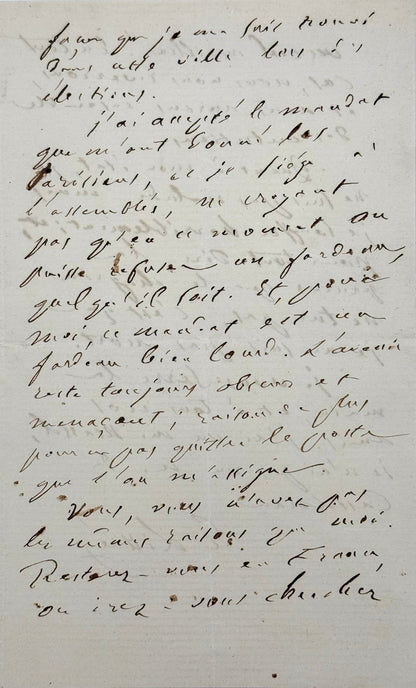 façon que je me suis trouvé
dans cette ville lors des
élections.
J'ai accepté le mandat
que m'ont donné les
Parisiens, et je siège à
l'assemblée, ne croyant
pas qu'en ce moment on
puisse refuser un fardeau,
quel qu'il soit. Et, pour
moi, ce mandat est un
fardeau bien lourd. L'avenir
reste toujours obscur et
menaçant ; raison de plus
pour ne pas quitter le poste
que l'on m'assigne
Vous, vous n'avez pas
les mêmes raisons que moi.
Resterez-vous en France,
ou irez-vous chercher